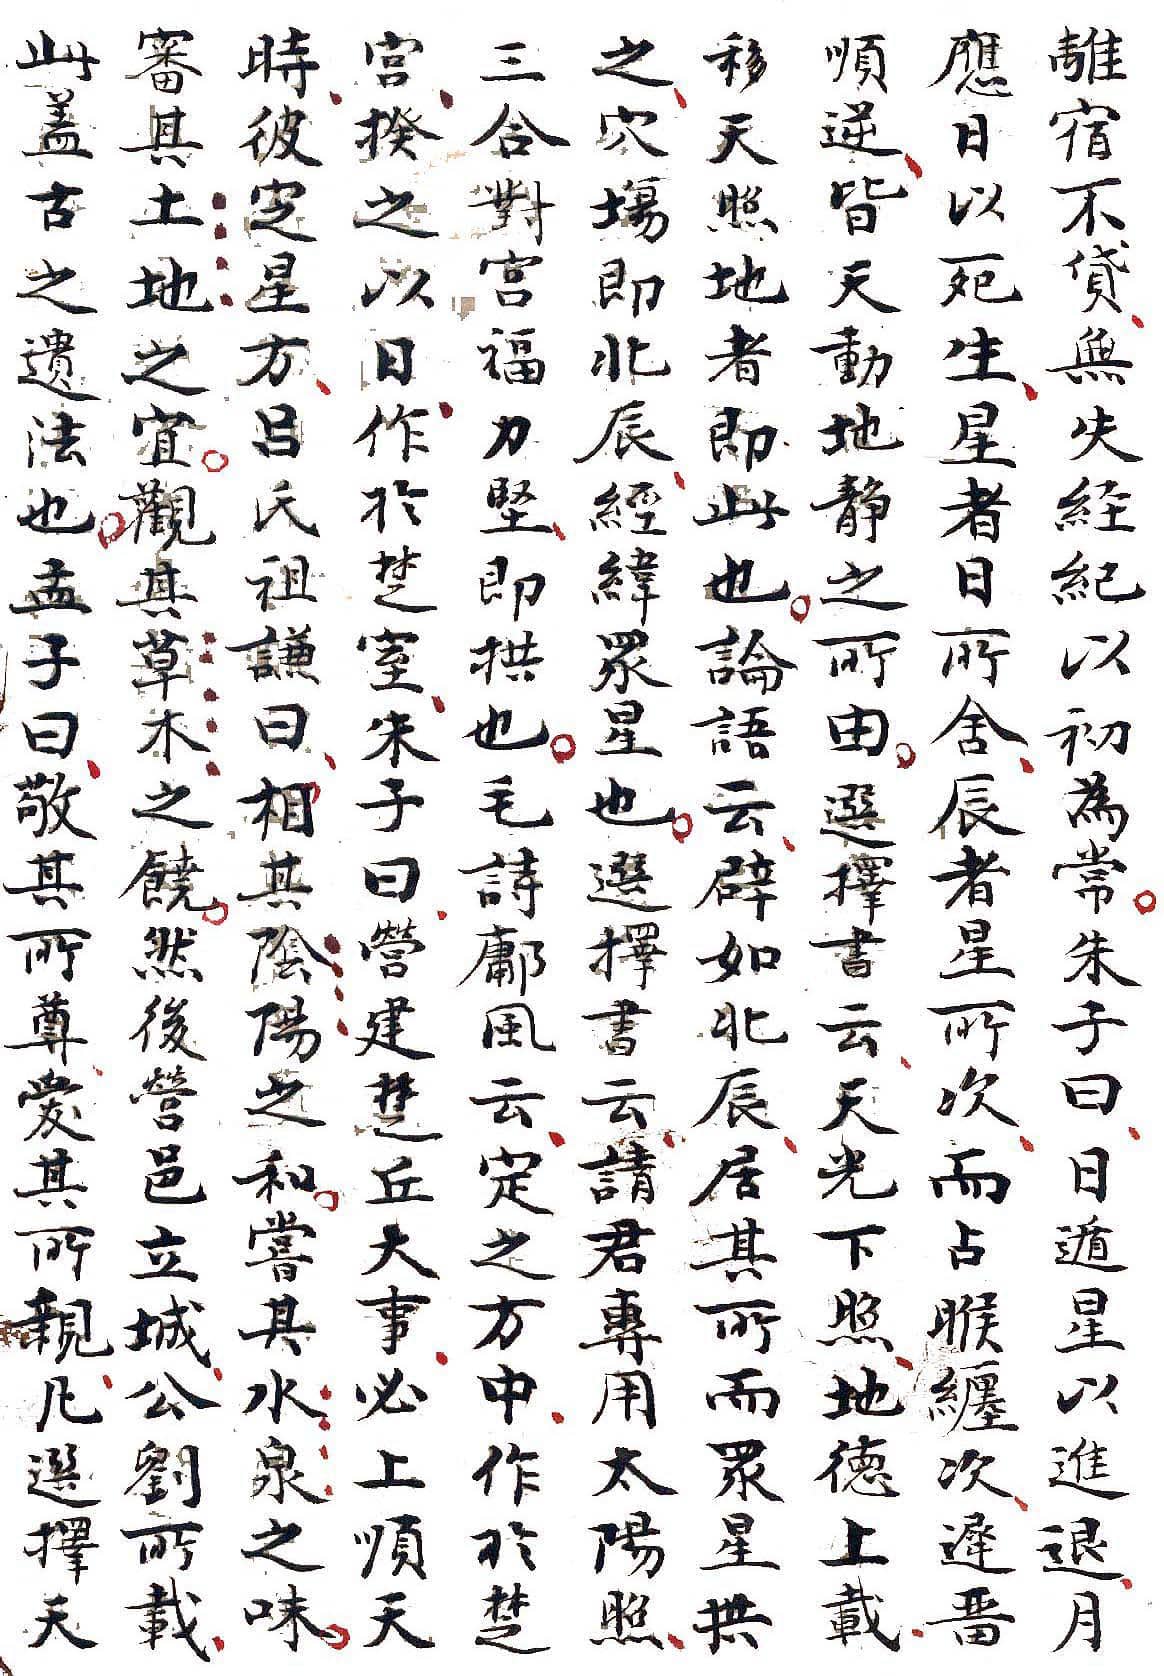 離宿不貸無失経紀以初為常朱子曰日遁星以進退月
應日以死生星者日所舍辰者星所次而占睺纏次遲畱
順逆皆天動地静之所由選擇書云天光下照地德上載
移天照地者即此也論語云辟如北辰居其所而眾星拱
之穴塲即北辰經緯眾星也選擇書云請君專用太陽照
三合對宫福力堅即拱也毛詩鄘風云定之方中作於楚
宫揆之以日作於楚室朱子曰營建楚丘大事必上順天
時彼定星方吕氏祖謙曰相其陰陽之和嘗其水泉之味
審其土地之宜觀其草木之饒然後營邑立城公劉所載
此盖古之遺法也孟子曰敬其所尊愛其所親凡選擇天